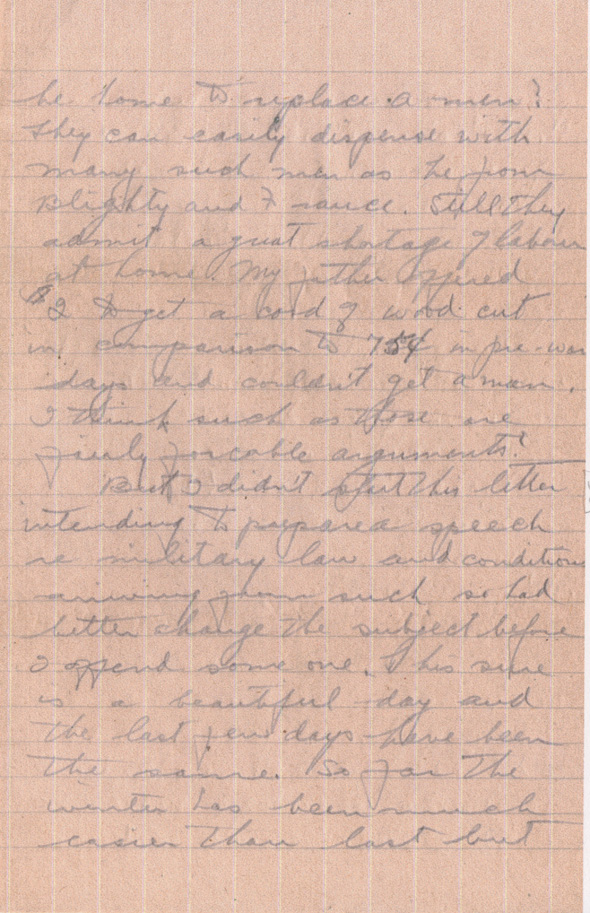 be home to replace a man?
They can easily dispense with
many such men as he from
Blighty and France. Still they
admit a great shortage of labour
at home. My father offered
$2 to get a cord of wood cut
in comparison to 75¢ in pre-war
days and couldn't get a man.
I think such as those are
fairly forcable arguments!
But I didn't start this letter
intending to prepare a speech
re military law and conditions
arriving from such so had
better change the subject before
I offend some one. This sure
is a beautiful day and
the last few days have been
the same. So far the
winter has been much
easier than last but